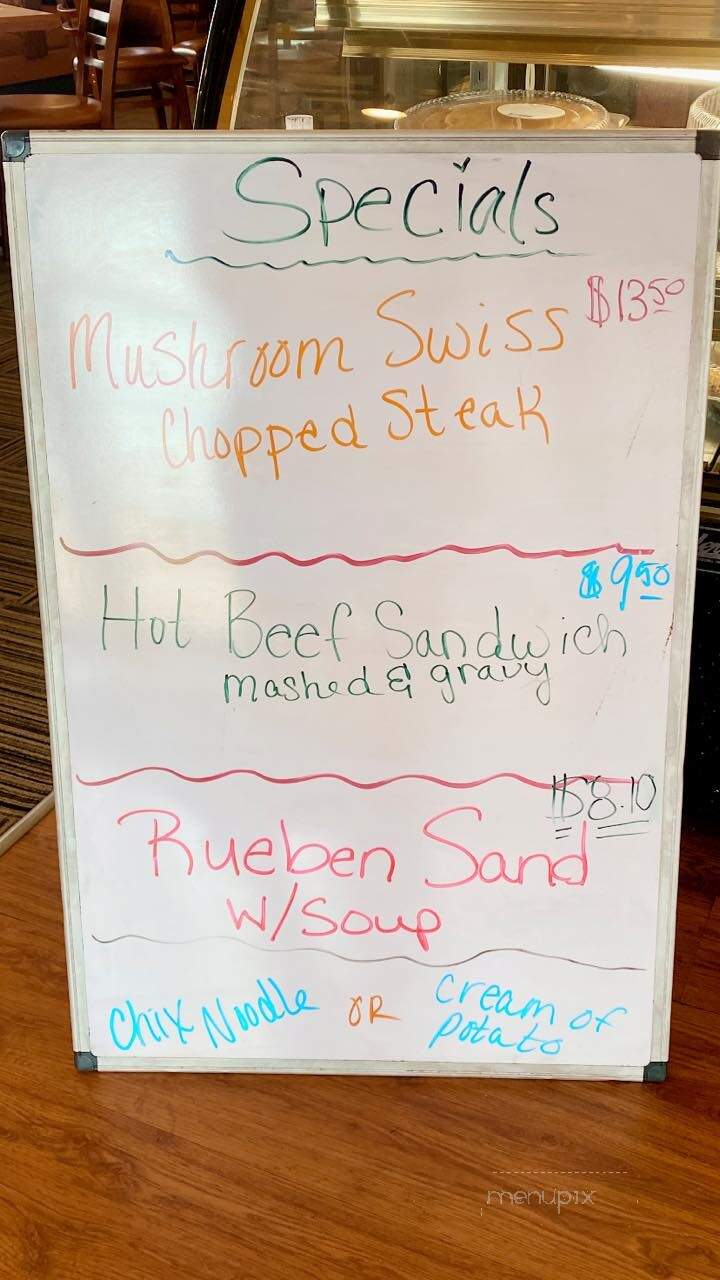 Specials
$13.50
Mushroom Swiss
Chopped Steak
$9.50
Hot Beef Sandwich
mashed & gravy
$8.10
Rueben Sand
W/Soup
Chix Noodle OR Cream of
Potato
menupix